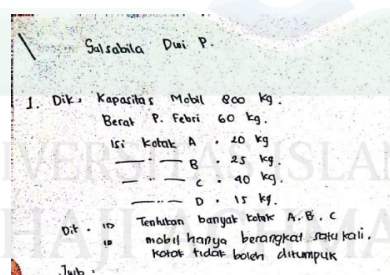 Salsabila Dwi P.
1. Dik : Kapasitas Mobil 800 kg.
Berat P. Febri 60 kg.
Isi Kotak A . 20 kg
——— " ——— B . 25 kg.
——— " ——— C . 40 kg.
——— " ——— D . 15 kg.
Dit . Tentukan banyak kotak A. B. C
mobil hanya berangkat satu kali.
kotak tidak boleh ditumpuk
Jwb :